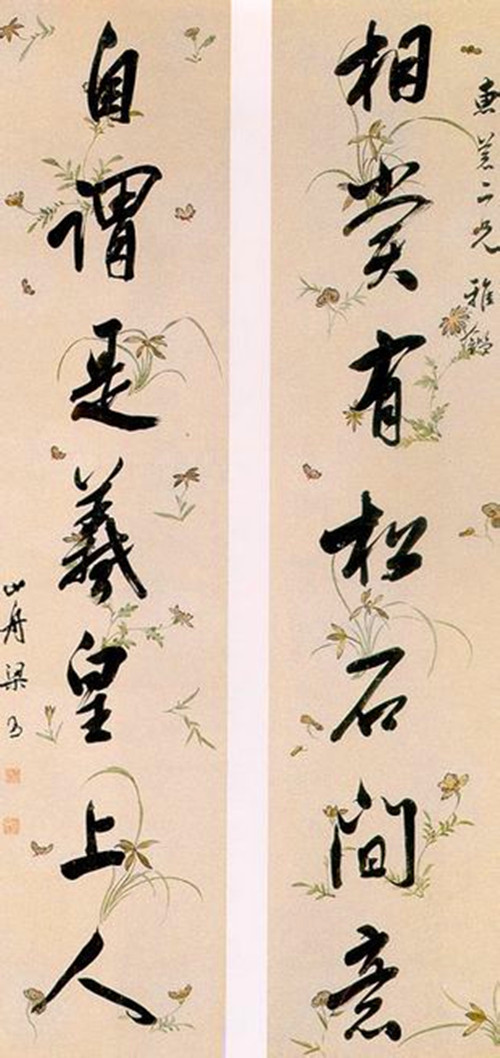 二兄雅鑑
相賞有松石間意
自謂是羲皇上人
山舟梁